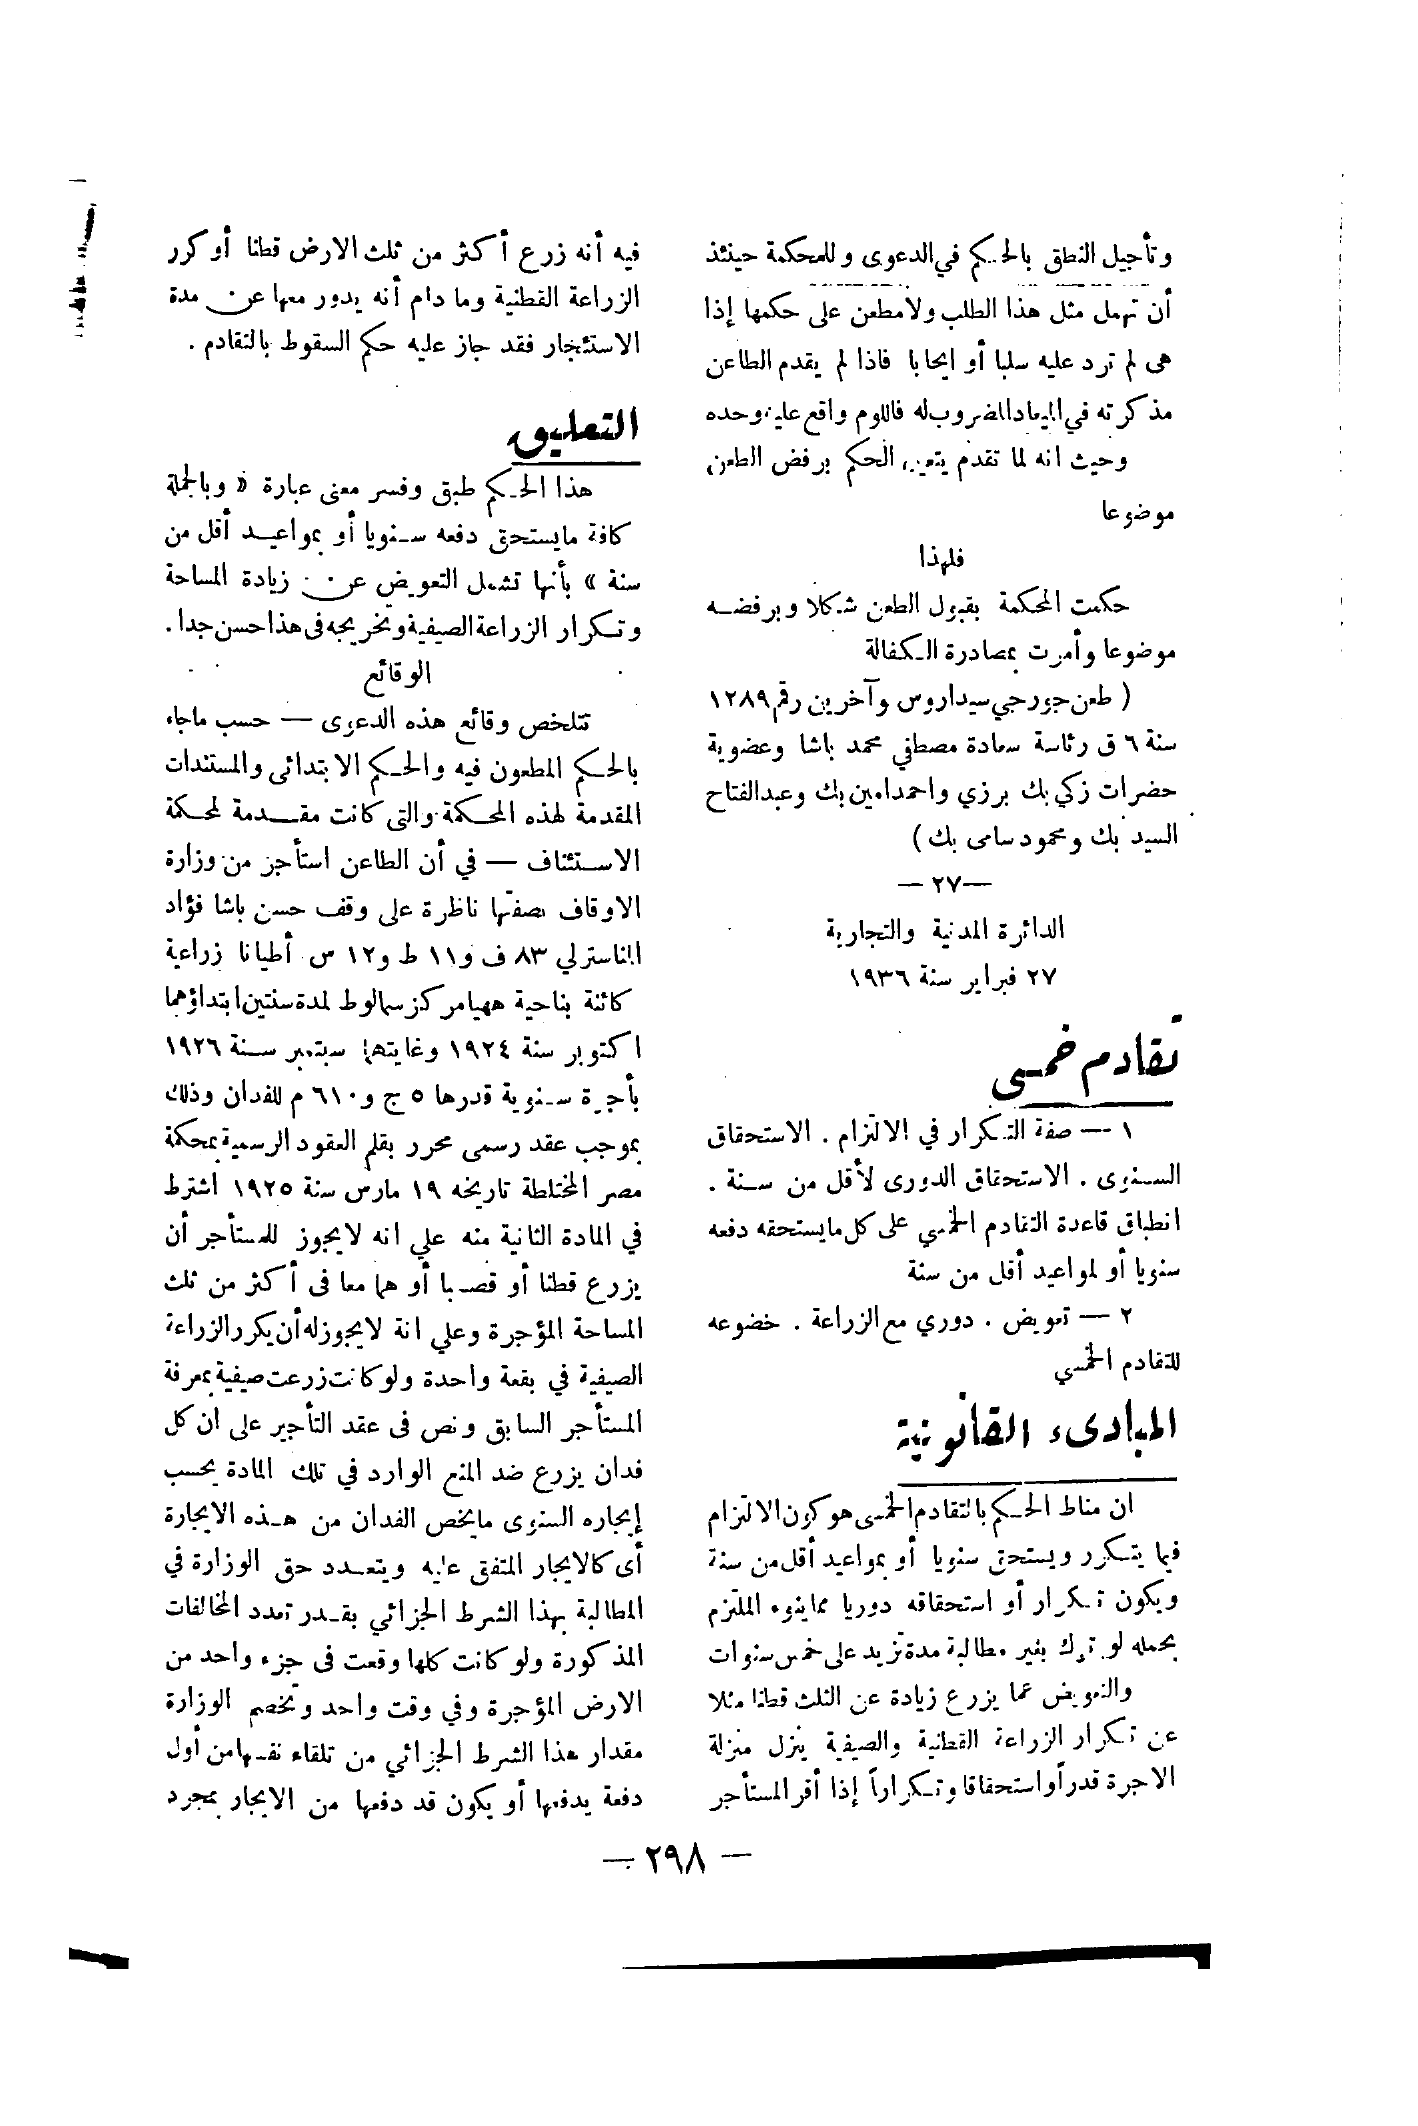 وتأجيل النطق بالحكم في الدعوى وللمحكمة حينئذ
أن تهمل مثل هذا الطلب ولامطعن على حكمها إذا
هى لم ترد عليه سلبا أو ايجابا فاذا لم يقدم الطاعن
مذكرته في الميعاد المضروب له فاللوم واقع عليه وحده
وحيث انه لما تقدم يتعين الحكم برفض الطعن
موضوعا
فلهذا
حكمت المحكمة بقبول الطعن شكلا وبرفضه
موضوعا وأمرت بمصادرة الكفالة
( طعن جورجي سيداروس وآخرين رقم ١٢٨٩
سنة ٦ ق رئاسة سعادة مصطفي محمد باشا وعضوية
حضرات زكي بك برزي واحمد امين بك وعبد الفتاح
السيد بك ومحمود سامى بك )
— ٢٧ —
الدائرة المدنية والتجارية
٢٧ فبراير سنة ١٩٣٦
تقادم خمسى
١ — صفة التكرار في الالتزام . الاستحقاق
السنوى . الاستحقاق الدورى لأقل من سنة .
انطباق قاعدة التقادم الخمسي على كل مايستحقه دفعه
سنويا أو لمواعيد أقل من سنة
٢ — تعويض . دوري مع الزراعة . خضوعه
للتقادم الخمسي
المبادىء القانونية
ان مناط الحكم بالتقادم الخمسى هو كون الالتزام
فيما يتكرر ويستحق سنويا أو بمواعيد أقل من سنة
ويكون تكرار أو استحقاقه دوريا مما ينوء الملتزم
بحمله لو ترك بغير مطالبة مدة تزيد على خمس سنوات
والتعويض عما يزرع زيادة عن الثلث قطنا مثلا
عن تكرار الزراعة القطنية والصيفية ينزل منزلة
الاجرة قدراً واستحقاقا وتكراراً إذا أقر المستأجر
فيه أنه زرع أكثر من ثلث الارض قطنا أو كرر
الزراعة القطنية وما دام أنه يدور معها عن مدة
الاستئجار فقد جاز عليه حكم السقوط بالتقادم .
التعليق
هذا الحكم طبق وفسر معنى عبارة « وبالجملة
كافة مايستحق دفعه سنويا أو بمواعيد أقل من
سنة » بأنها تشمل التعويض عن زيادة المساحة
وتكرار الزراعة الصيفية وتخريجه فى هذا حسن جدا .
الوقائع
تتلخص وقائع هذه الدعوى — حسب ماجاء
بالحكم المطعون فيه والحكم الابتدائى والمستندات
المقدمة لهذه المحكمة والتى كانت مقدمة لمحكمة
الاستئناف — في أن الطاعن استأجر من وزارة
الاوقاف بصفتها ناظرة على وقف حسن باشا فؤاد
المناسترلي ٨٣ ف و١١ ط و١٢ س أطيانا زراعية
كائنة بناحية ههيا مركز سمالوط لمدة سنتين ابتداؤهما
اكتوبر سنة ١٩٢٤ وغايتهما سبتمبر سنة ١٩٢٦
بأجرة سنوية قدرها ٥ ج و٦١٠ م للفدان وذلك
بموجب عقد رسمى محرر بقلم العقود الرسمية بمحكمة
مصر المختلطة تاريخه ١٩ مارس سنة ١٩٢٥ اشترط
في المادة الثانية منه علي انه لايجوز للمستأجر أن
يزرع قطنا أو قصبا أو هما معا فى أكثر من ثلث
المساحة المؤجرة وعلي انة لايجوز له أن يكرر الزراعة
الصيفية في بقعة واحدة ولو كانت زرعت صيفية بمعرفة
المستأجر السابق ونص فى عقد التأجير على ان كل
فدان يزرع ضد المنع الوارد في تلك المادة يحسب
إيجاره السنوى مايخص الفدان من هذه الايجارة
أى كالايجار المتفق عليه ويتعدد حق الوزارة في
المطالبة بهذا الشرط الجزائي بقدر تعدد المخالفات
المذكورة ولو كانت كلها وقعت فى جزء واحد من
الارض المؤجرة وفي وقت واحد وتخصم الوزارة
مقدار هذا الشرط الجزائي من تلقاء نفسها من أول
دفعة يدفعها أو يكون قد دفعها من الايجار بمجرد
— ٢٩٨ —